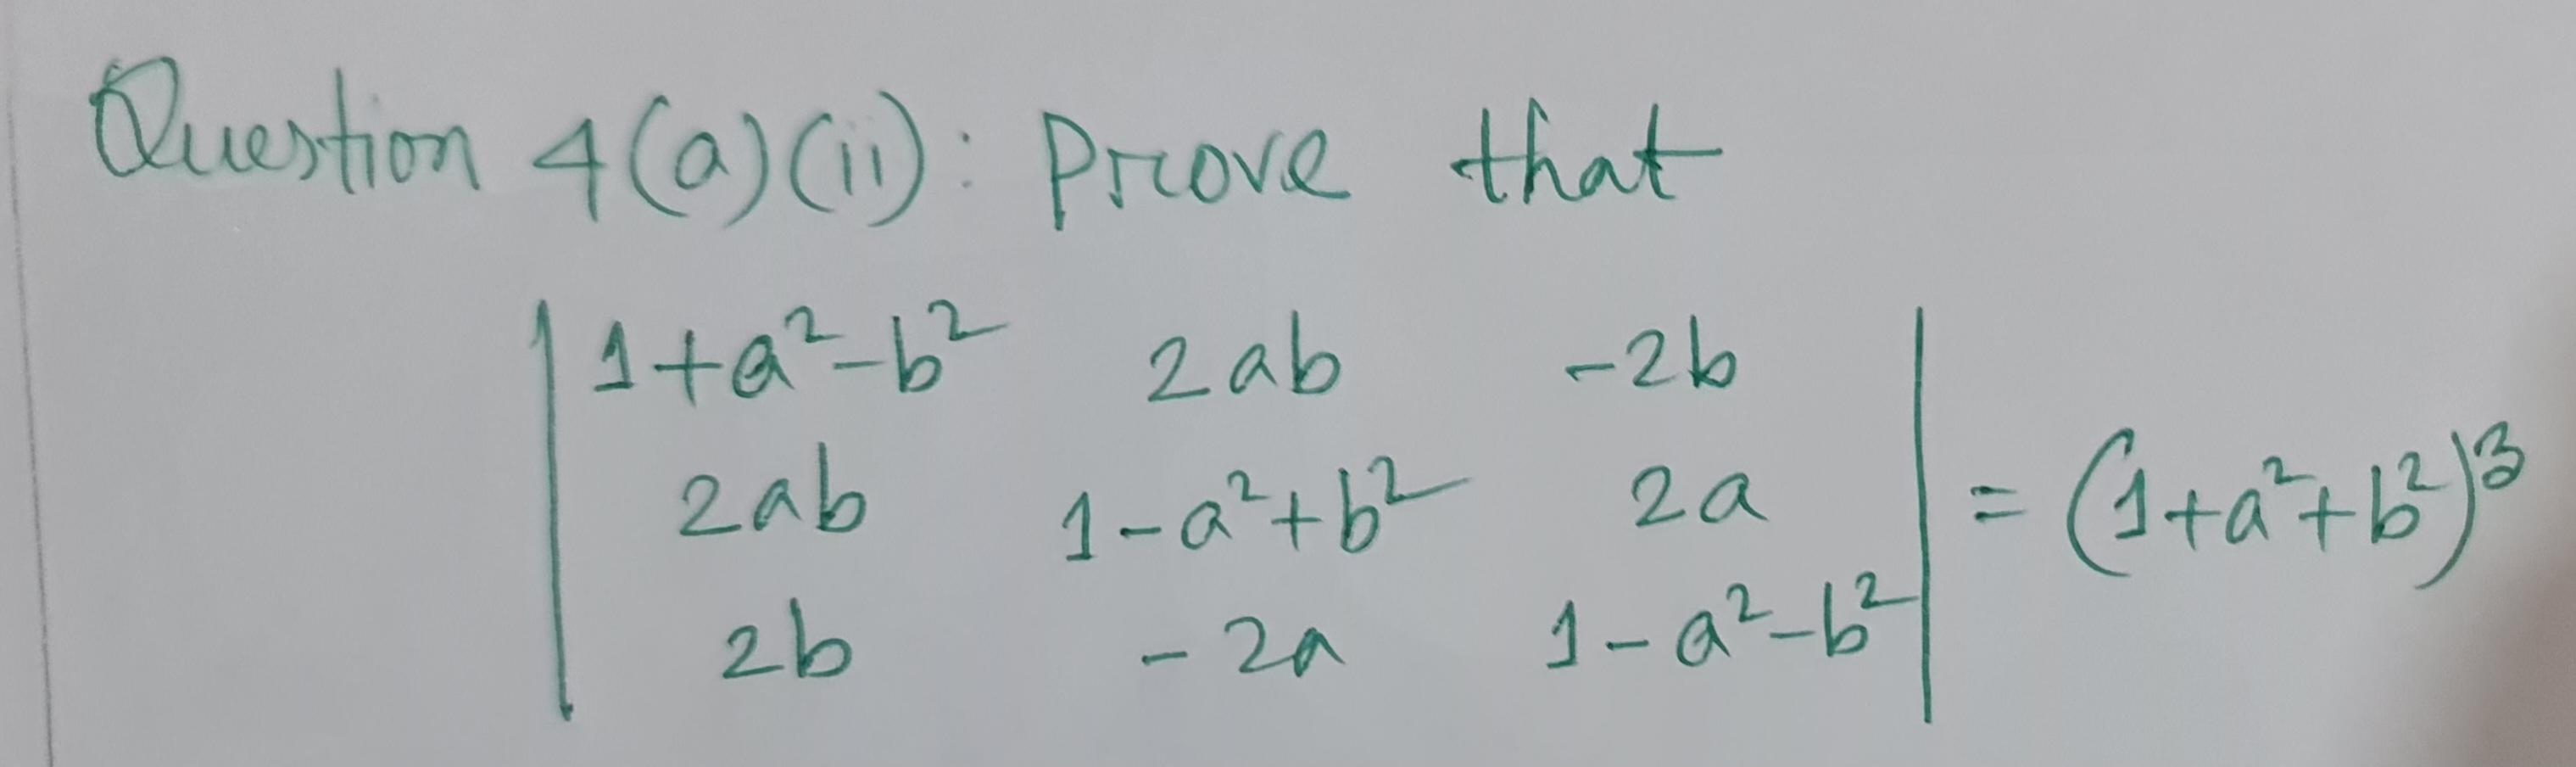 Question 4(a)(ii): Prove that
| 1+a²-b² 2ab -2b |
| 2ab 1-a²+b² 2a | = (1+a²+b²)³
| 2b -2a 1-a²-b² |